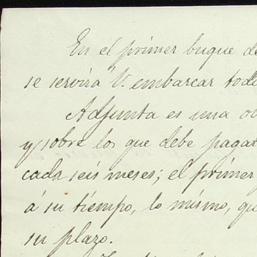 En el primer buque de
se servirá V. embarcar todo
Adjunta es una
y sobre los que debe pagar
cada seis meses; el primer
á su tiempo, lo mismo, que
su plazo.